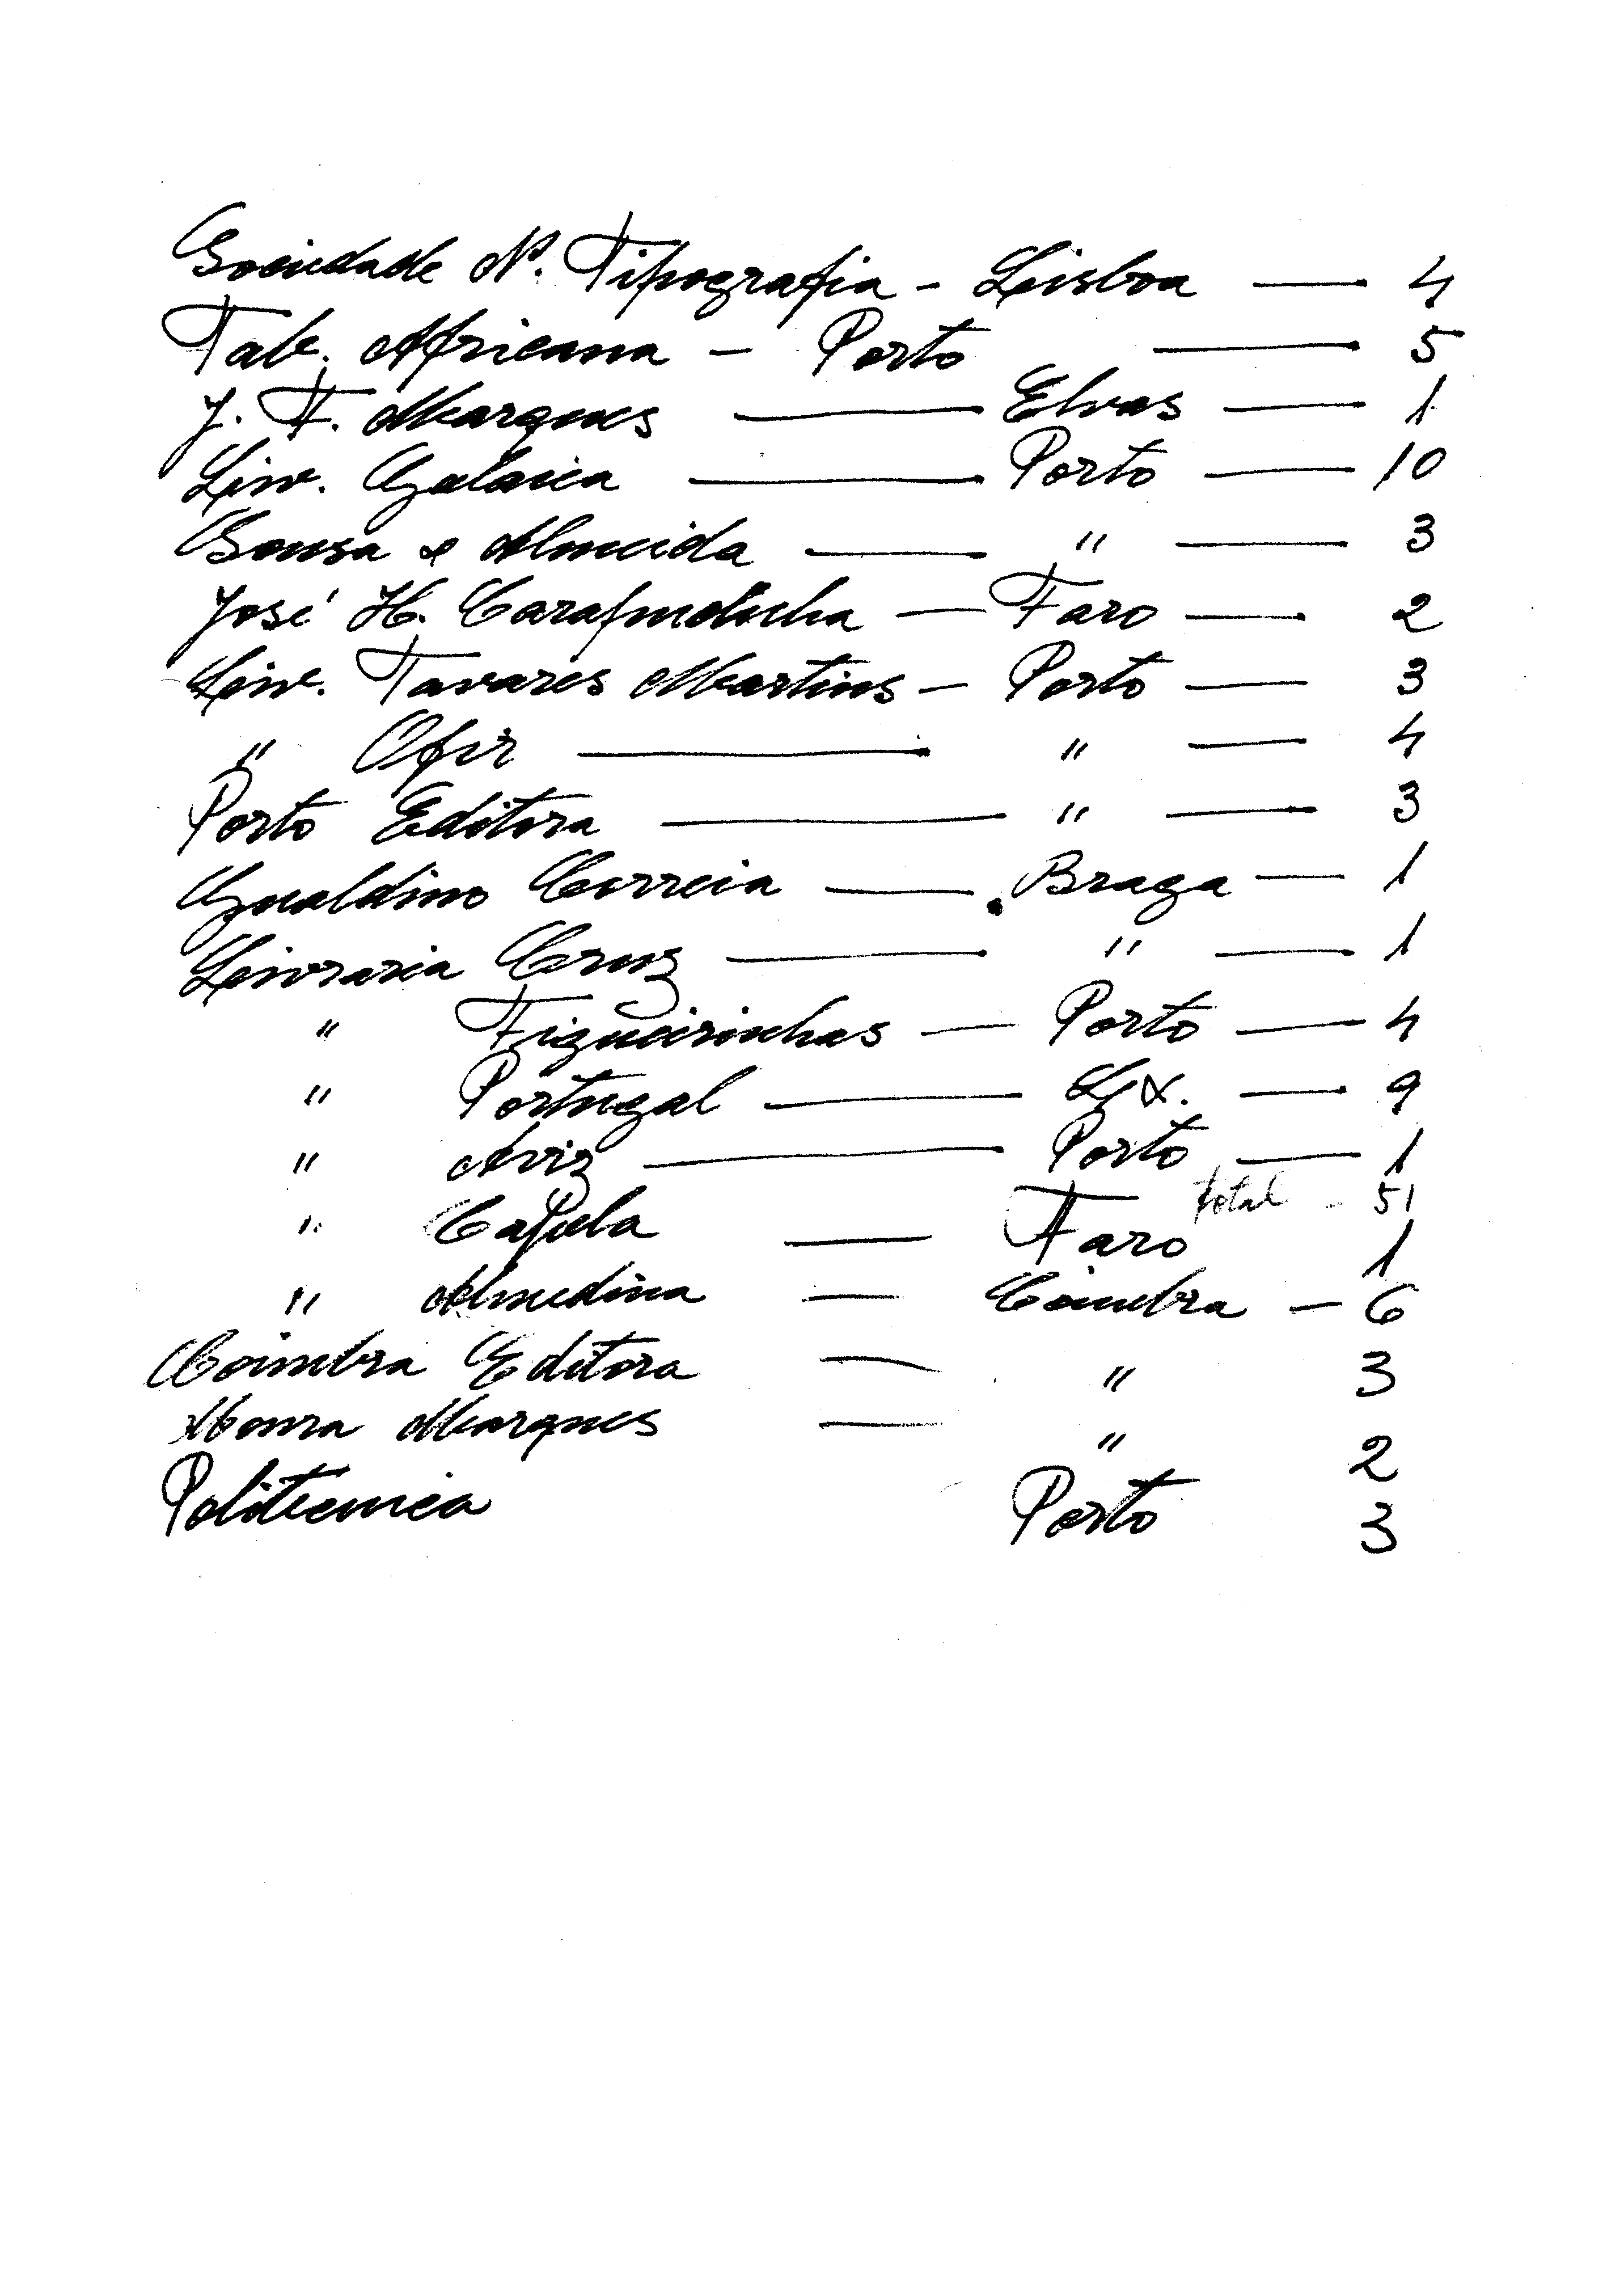 Sociedade N. Tipografia - Lisboa — 4
Tab. Africana - Porto — 5
J. F. Marques — Elvas — 1
Livr. Galaica — Porto — 10
Sousa e Almeida — " — 3
José H. Carapudinha — Faro — 2
Livr. Tavares Martins - Porto — 3
" Ofir — " — 4
Porto Editora — " — 3
Gualdino Correia — Braga — 1
Livraria Cruz — " — 1
" Figueirinhas — Porto — 4
" Portugal — Lx. — 9
" Aviz — Porto — 1
total - 51
" Capela — Faro 1
" Almedina — Coimbra — 6
Coimbra Editora — " 3
Moura Marques — " 2
Politecnica Porto 3